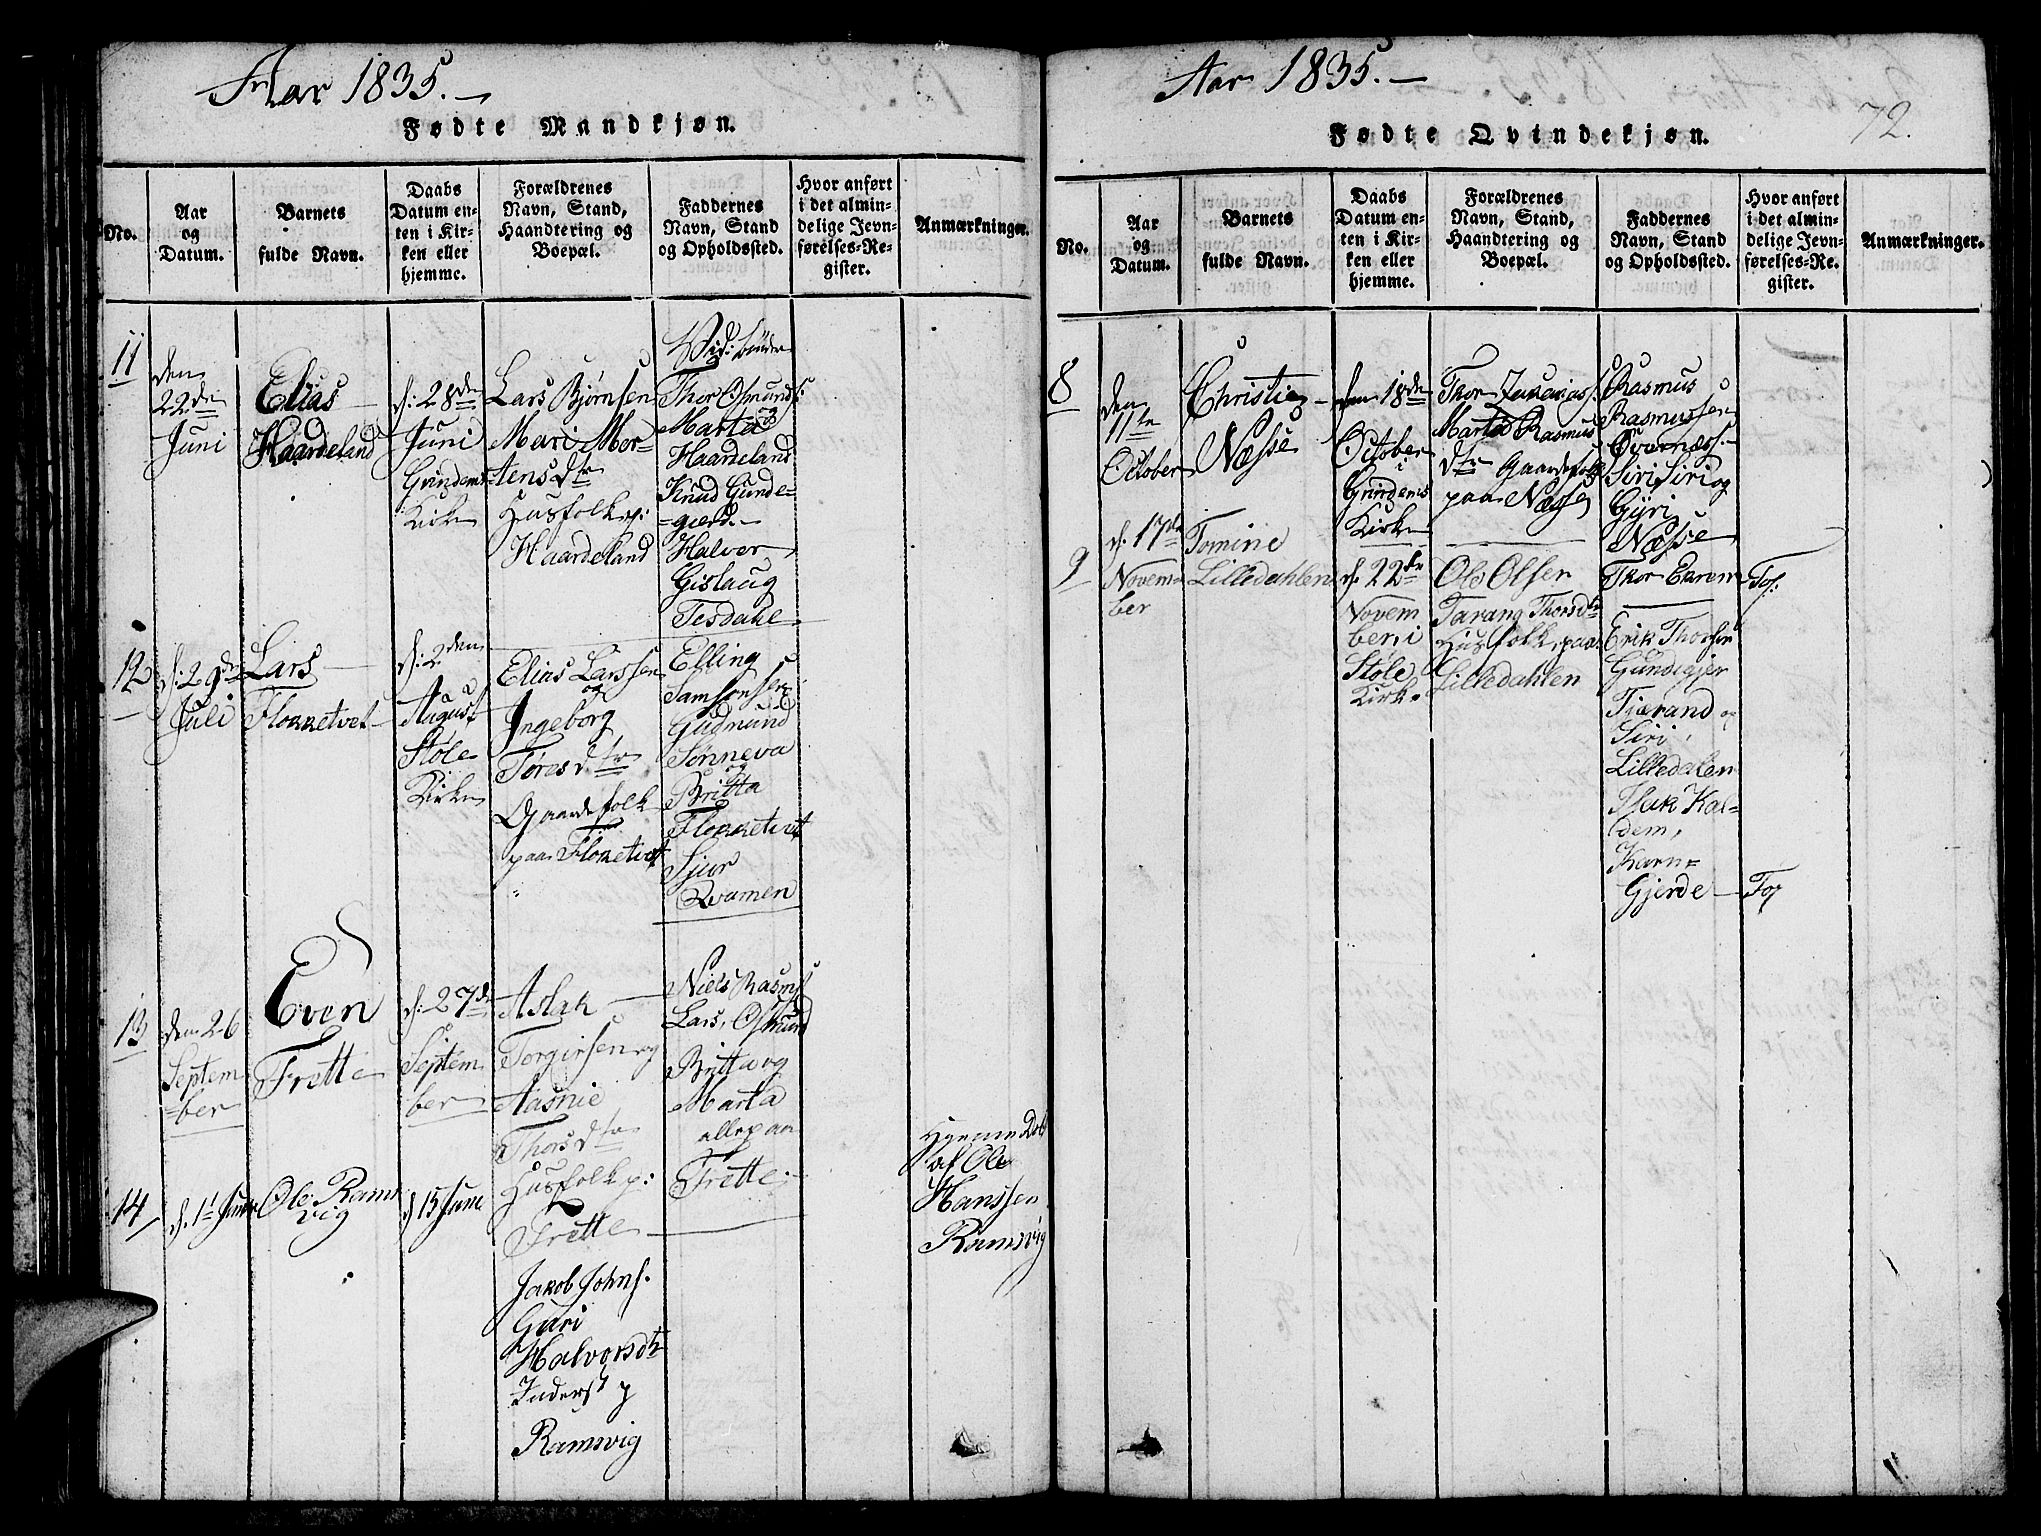 Aar 1835.
Fødte Mandkjøn.
No.
Aar
og
Datum.
Barnets
fulde Navn.
Daabs
Datum en-
ten i Kir-
ken eller
hjemme.
Forældrenes
Navn, Stand,
Haandtering og
Boepæl.
Faddernes
Navn, Stand
og Opholdssted.
Hvor anført
i det almin-
delige Jevn-
førelses-Re-
gister.
Anmærkninger.
11
den
22de
Juni
Elias
Haardeland
d: 28de
Juni
Grindems
Kirke
Lars Bjørnsen
Mari Mor-
tens Dtr
Husfolk p:
Haardeland
Thor Osmunds:
Marta
Haardeland
Knud Gunde-
gierd.
Halver
Gislaug
Tesdahl
12
d: 29de
Juli
Lars
Flokketvet
d: 2den
August
Støle
Kirke
Elias Larssen
og
Ingeborg
Tøres dtr
Gaardefolk
paa Flokketvet
Elling
Samsonsen
Gudmund
Sønneva
og
Britta
Flokketvet
Sjur
Qvamen
13
den 26
Septem
=ber
Even
Frette
d: 27de
Septem
ber
Aslak
Torgirsen og
Aasnie
Thors dtr
Husfolk p:
Frette
Niels Rasms
Lars, Osmund
Britta og
Marta
alle paa
Frette
14
d. 1te Juni
Ole Rams
vig
d 15 Juni
Jakob Johns.
Guri
Halvorsdtr
Inderst p
Ramsvig
Hjemme Døbt
af Ole
Hanssen
Ramsvig
Aar 1835.
72.
Fødte Qvindekjøn.
No.
Aar
og
Datum.
Barnets
fulde Navn.
Daabs
Datum en-
ten i Kir-
ken eller
hjemme.
Forældrenes
Navn, Stand,
Haandtering og
Boepæl.
Faddernes
Navn, Stand
og Opholdssted.
Hvor anført
i det almin-
delige Jevn-
førelses-Re-
gister.
Anmærkninger.
8
den
11te
October
Næsse
den 18de
October
i
Grindems
Kirke
Thor Zakarias:
Marta Rasmus
dtr Gaardefolk
paa Næsse
Rasmus
Rasmussen
Øvernæss
Siri Siri og
Gyri
Næsse
9
d: 17de
Novem
ber
Tomine
Lilledahlen
d. 22de
Novem
ber, i
Støle
Kirke
Ole Olsen
Tarang Thorsdtr
Husfolk paa
Lilledahlen
Erik Thorsen
Gundigjer
Tiærand og
Siri
Lilledalen
Kal-
dem,
Karn
Gjerde